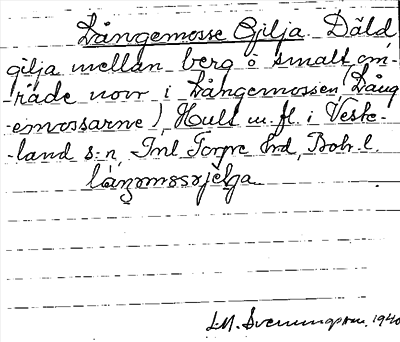 Långemosse Gilja Däld
gilja mellan berg o smalt om-
-råde norr i Långemossen (Lång
-emossarne), Hult m.fl. i Väske-
-land s:n, Inl Torpe hd, Boh. l.
L.M. Svenungsson. 1940